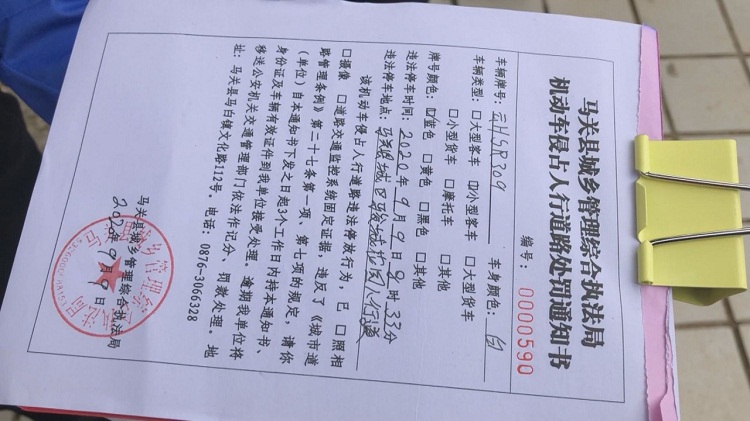 马关县城乡管理综合执法局
机动车侵占人行道路处罚通知书
编号：0000590
车辆牌号：云HSR309 车身颜色：白
车辆类型：□大型客车 ☑小型客车 □大型货车
□小型货车 □摩托车 □其他
牌号颜色：☑蓝色 □黄色 □黑色 □其他
违法停车时间：2020年9月9日9时33分
违法停车地点：马关县城区
该机动车侵占人行道路违法停放行为，已 □照相
□摄像 □道路交通监控系统固定证据，违反了《城市道
路管理条例》第二十七条第一项、第七项的规定，请你
（单位）自本通知书下发之日起3个工作日内持本通知书、
身份证及车辆有效证件到我单位接受处理。逾期我单位将
移送公安机关交通管理部门依法作记分、罚款处理。地
址：马关县马白镇文化路112号。电话：0876-3066328
马关县城乡管理综合执法局
2020年9月9日